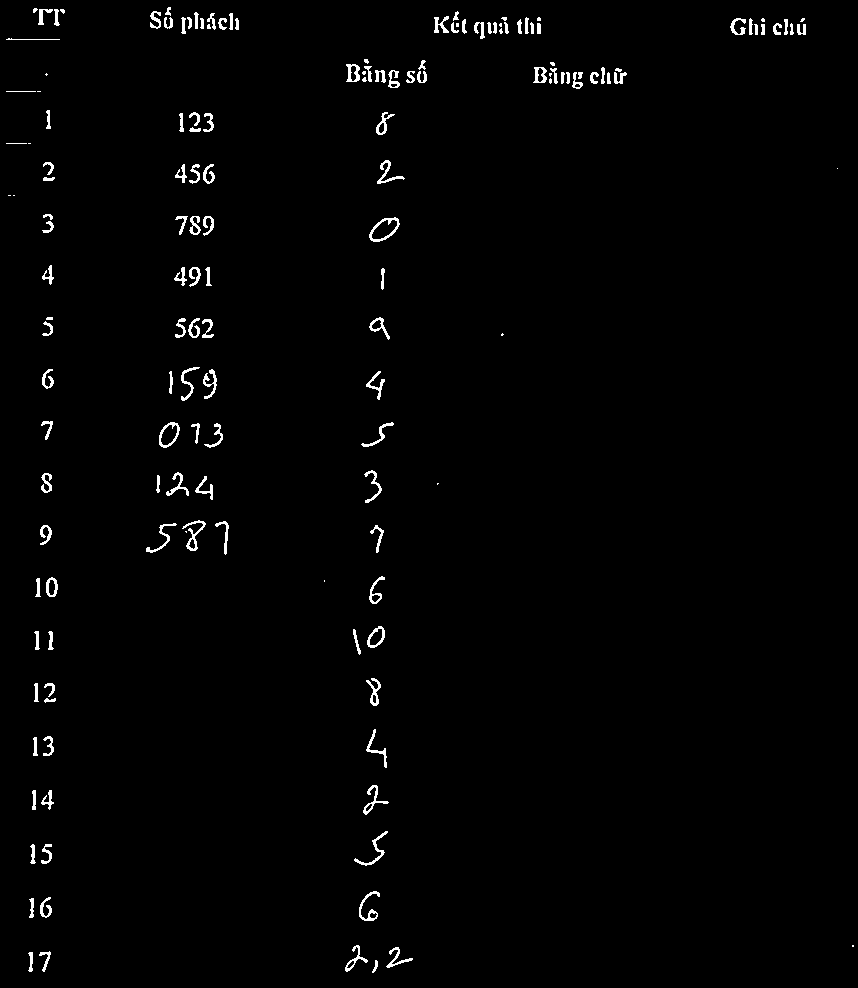 TT Số phách Kết quả thi Ghi chú
Bằng số Bằng chữ
1 123 8
2 456 2
3 789 0
4 491 1
5 562 9
6 159 4
7 073 5
8 124 3
9 587 7
10 6
11 10
12 8
13 4
14 2
15 5
16 6
17 2,2